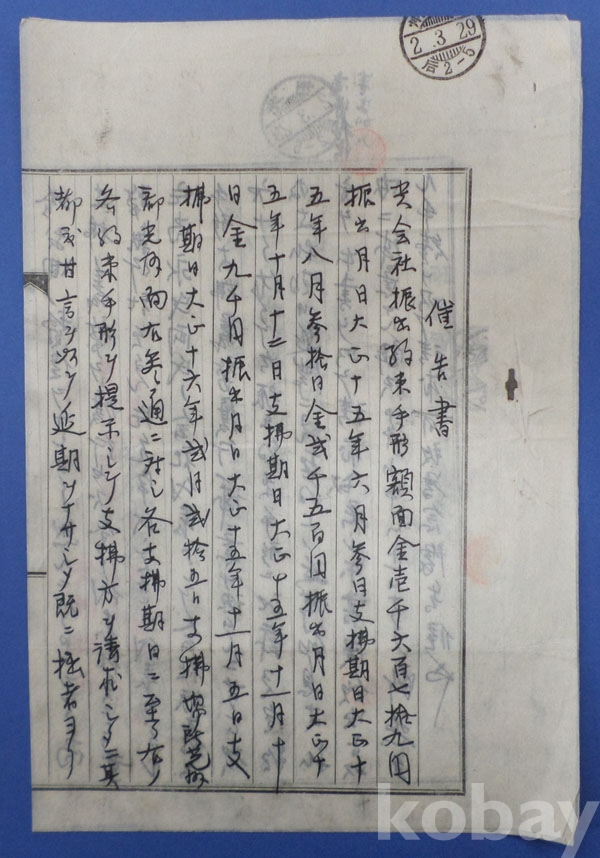 催告書
貴会社振出約束手形額面金壱千六百七拾九円
振出月日大正十五年六月参日支拂期日大正十
五年八月参拾日金弐千五百円振出月日大正十
五年十月十二日支拂期日大正十五年十一月十
日金九千円振出月日大正十五年十一月五日支
拂期日大正十六年弐月弐拾五日支拂場所
額面右参通ニ対シ各支拂期日ニ至リ右ノ
各約束手形ヲ提示シテ支拂方ヲ請求シタニ其
都度甘言ヲ以ツ延期ヲナサシメ既ニ拙者ヨリ
2.3.29
后2-5
kobay